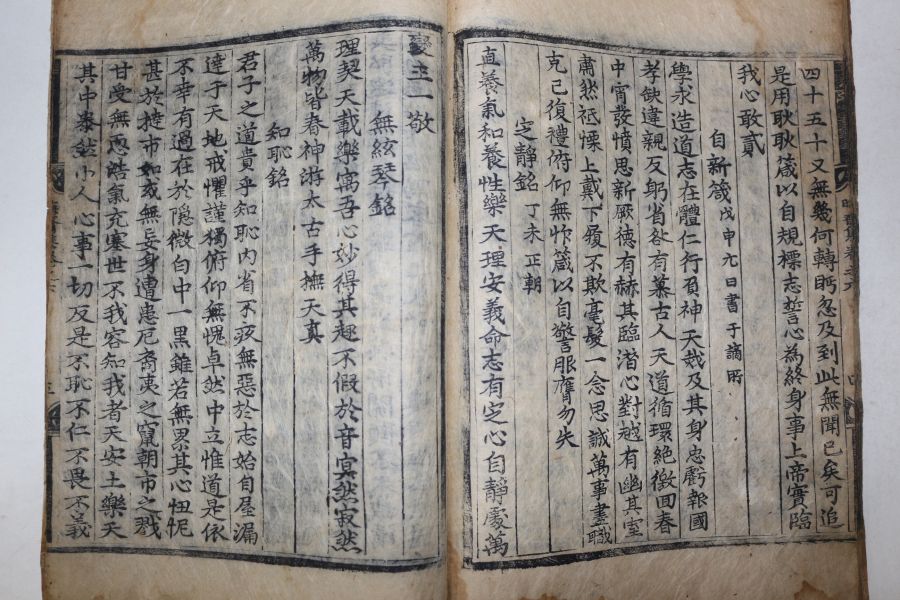 四十五十又無幾何轉眄忽及到此無聞已矣可追
是用耿耿箴以自規標志誓心為終身事上帝實臨
我心敢貳
自新箴戊申元日書于謫所
學求造道志在體仁行負神天烖及其身忠虧報國
孝缺違親反躬省咎有慕古人天道循環絶徵回春
中宵發憤思新厥德有赫其臨潜心對越有幽其室
肅然祗慄上戴下履不欺毫髮一念思誠萬事盡職
克己復禮俯仰無怍箴以自警服膺勿失
定靜銘丁未正朝
直養氣和養性樂天理安義命志有定心自靜處萬
變主一敬
無絃琴銘
理契天載樂寓吾心妙得其趣不假於音冥然寂然
萬物皆春神游太古手撫天真
知恥銘
君子之道貴乎知恥內省不疚無惡於志始自屋漏
達于天地戒懼謹獨俯仰無愧卓然中立惟道是依
不幸有過在於隱微白中一黑雖若無累其心忸怩
甚於撻市如或無妄身遭患厄裔夷之竄朝市之戮
甘受無慍浩氣充塞世不我容知我者天安土樂天
其中泰然小人心事一切反是不恥不仁不畏不義